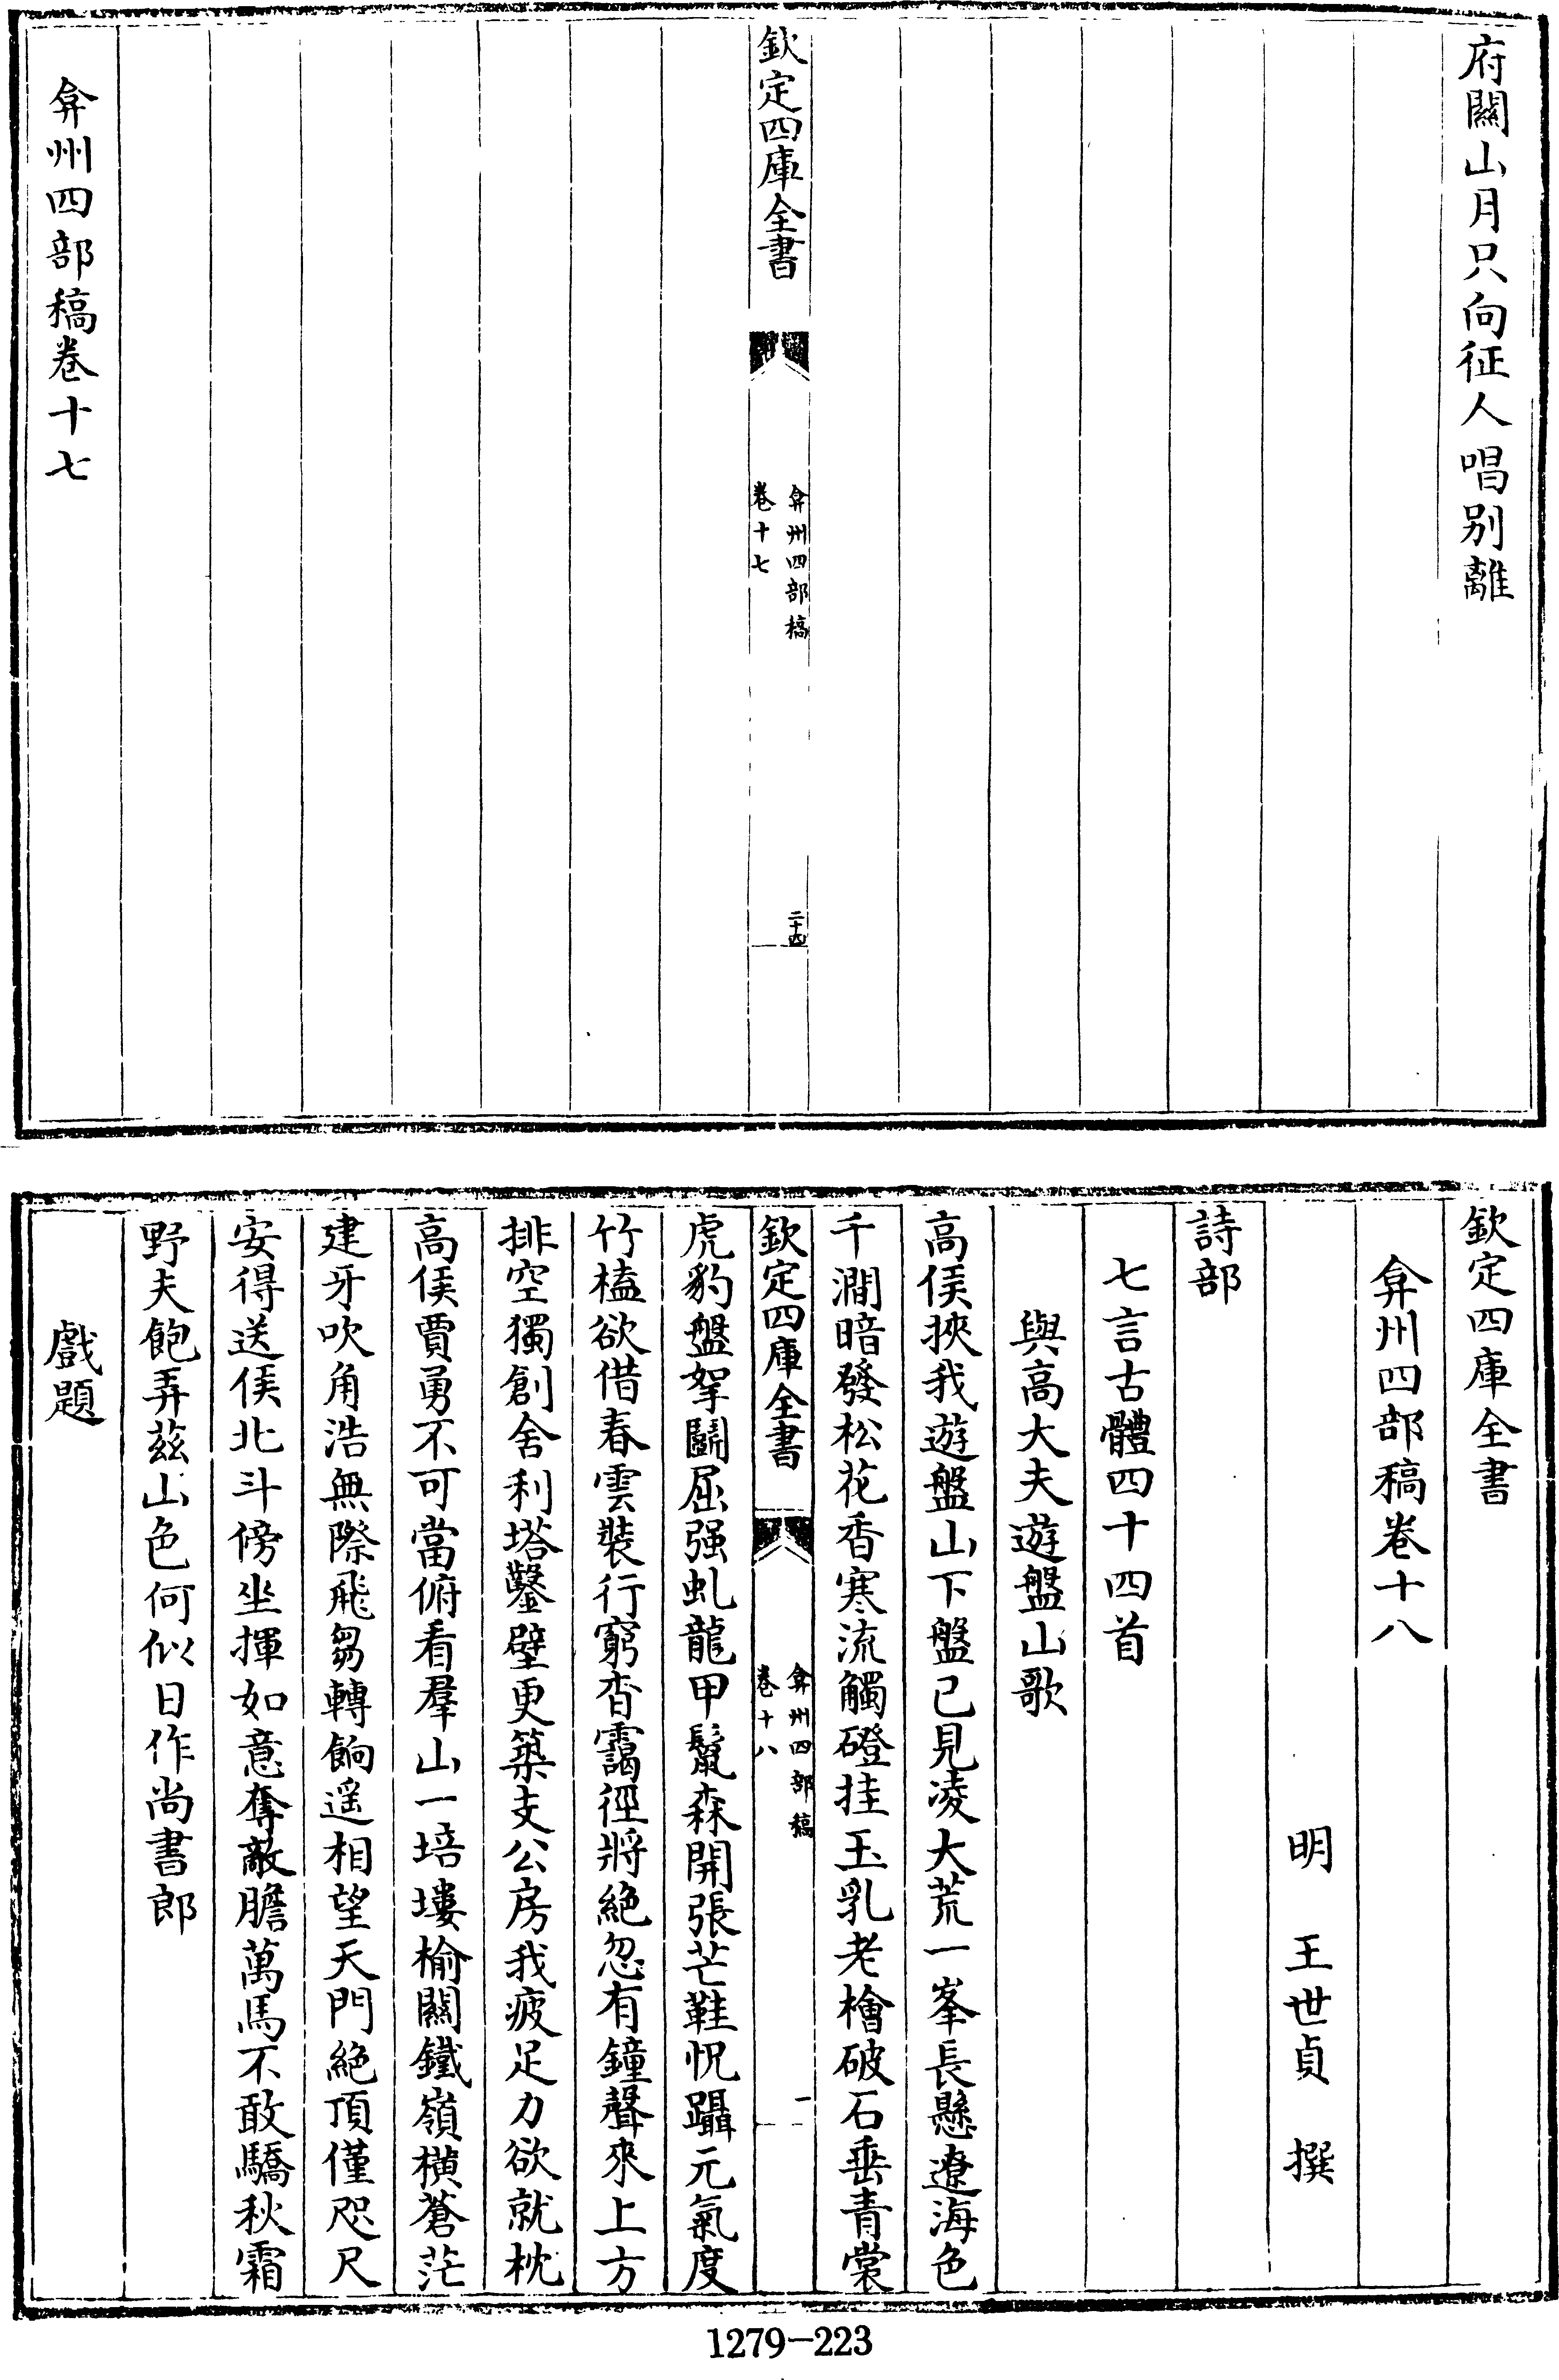 府關山月只向征人唱別離
欽定四庫全書
弇州四部稿
卷十七
二十四
弇州四部稿卷十七
欽定四庫全書
弇州四部稿卷十八
明 王世貞 撰
詩部
七言古體四十四首
與高大夫遊盤山歌
高侯挾我遊盤山下盤已見凌大荒一峯長懸遼海色
千澗暗發松花香寒流觸磴挂玉乳老檜破石垂青裳
欽定四庫全書
弇州四部稿
卷十八
一
虎豹盤拏鬬屈强虬龍甲鬛森開張芒鞋怳躡元氣度
竹榼欲借春雲裝行窮杳靄徑將絶忽有鐘聲來上方
排空獨創舍利塔鑿壁更築支公房我疲足力欲就枕
高侯賈勇不可當俯看羣山一培塿榆關鐵嶺横蒼茫
建牙吹角浩無際飛芻轉餉遥相望天門絶頂僅咫尺
安得送侯北斗傍坐揮如意奪敵膽萬馬不敢驕秋霜
野夫飽弄兹山色何似日作尚書郎
戲題
1279-223